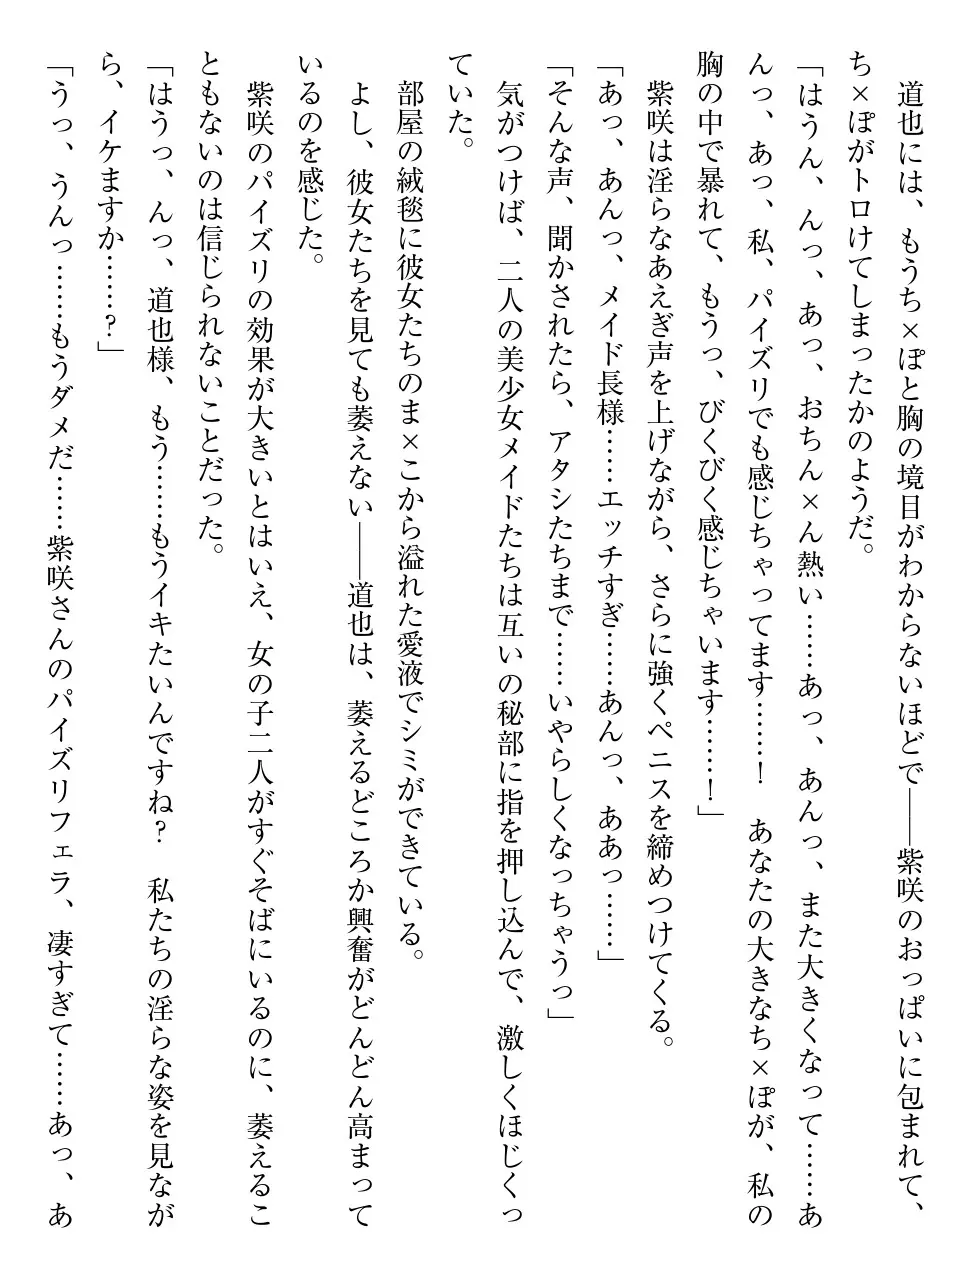 道也には、もうち×ぽと胸の境目がわからないほどで――紫咲のおっぱいに包まれて、
ち×ぽがトロけてしまったかのようだ。
「はうん、んっ、あっ、おちん×ん熱い……あっ、あんっ、また大きくなって……あ
んっ、あっ、私、パイズリでも感じちゃってます……！　あなたの大きなち×ぽが、私の
胸の中で暴れて、もうっ、びくびく感じちゃいます……！」
　紫咲は淫らなあえぎ声を上げながら、さらに強くペニスを締めつけてくる。
「あっ、あんっ、メイド長様……エッチすぎ……あんっ、ああっ……」
「そんな声、聞かされたら、アタシたちまで……いやらしくなっちゃうっ」
　気がつけば、二人の美少女メイドたちは互いの秘部に指を押し込んで、激しくほじくっ
ていた。
　部屋の絨毯に彼女たちのま×こから溢れた愛液でシミができている。
　よし、彼女たちを見ても萎えない――道也は、萎えるどころか興奮がどんどん高まって
いるのを感じた。
　紫咲のパイズリの効果が大きいとはいえ、女の子二人がすぐそばにいるのに、萎えるこ
ともないのは信じられないことだった。
「はうっ、んっ、道也様、もう……もうイキたいんですね？　私たちの淫らな姿を見なが
ら、イケますか……？」
「うっ、うんっ……もうダメだ……紫咲さんのパイズリフェラ、凄すぎて……あっ、あ